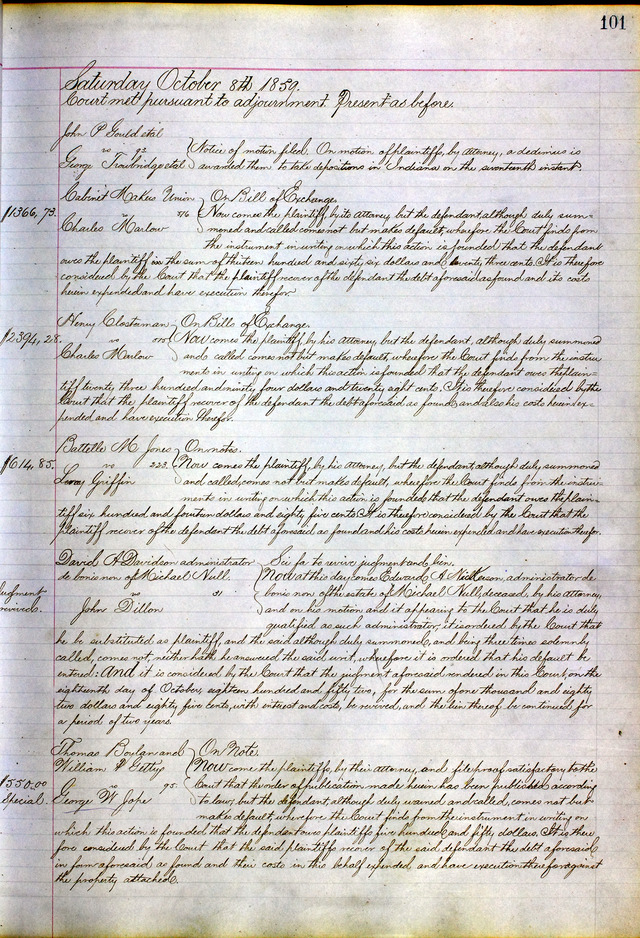 101
Saturday October 8th 1859.
Court met pursuant to adjournment. Present as before.
John P Gould et al
vs 93 Notice of motion filed. On motion of plaintiffs, by Attorney, a dedimus is
George Trowbridge et al awarded them to take depositions in Indiana on the seventeenth instant.
Cabinet Makers Union On Bill of Exchange.
$1366,73. vs 776 Now comes the plaintiff by its attorney but the defendant, although duly sum-
Charles Marlow moned and called comes not but makes default, wherefore the Court finds from
the instrument in writing on which this action is founded that the defendant
owes the plaintiff in the sum of thirteen hundred and sixty six dollars and seventy three cents. It is therefore
considered by the Court that the plaintiff recover of the defendant the debt aforesaid as found and its costs
herein expended and have execution therefor.
Henry Closterman On Bills of Exchange.
$2394,28. vs Now comes the plaintiff by his Attorney, but the defendant, although duly summoned
Charles Marlow and called comes not but makes default, wherefore the Court finds from the instru-
ments in writing on which this action is founded that the defendant owes the plain-
tiff twenty three hundred and ninety four dollars and twenty eight cents. It is therefore considered by the
Court that the plaintiff recover of the defendant the debt aforesaid as found, and also his costs herein ex-
pended and have execution therefor.
Battelle M Jones On notes.
$614,85. vs 223. Now comes the plaintiff, by his Attorney, but the defendant, although duly summoned
Leroy Griffin and called, comes not but makes default, wherefore the Court finds from the instru-
ments in writing on which this action is founded, that the defendant owes the plain-
tiff six hundred and fourteen dollars and eighty five cents. It is therefore considered by the Court that the
plaintiff recover of the defendant the debt aforesaid as found and his costs herein expended, and have execution therefor.
David A Davidson administrator Sci fa to revive judgment and lien.
de bonis non of Michael Null. Now at this day comes Edward A Nickerson, administrator de
Judgment vs 31 bonis non of the estate of Michael Null, deceased, by his attorney,
revived. John Dillon and on his motion and it appearing to the Court that he is duly
qualified as such administrator, it is ordered by the Court that
he be substituted as plaintiff, and the said although duly summoned, and being three times solemnly
called, comes not, neither hath he answered the said writ, wherefore it is ordered that his default be
entered: And it is considered by the Court that the judgment aforesaid rendered in this Court, on the
eighteenth day of October, eighteen hundred and fifty two, for the sum of one thousand and eighty
two dollars and eighty five cents, with interest and costs, be revived, and the lien thereof be continued for
a period of two years.
Thomas Boylan and On Note.
William P Gettys Now come the plaintiffs, by their attorney, and file proof satisfactory to the
$550.00 vs 95. Court that the order of publication made herein has been published according
Special. George W Jope to law, but the defendant although duly warned and called, comes not but
makes default, wherefore the Court finds from the instrument in writing on
which this action is founded that the defendant owes plaintiffs five hundred and fifty dollars. It is there
fore considered by the Court that the said plaintiffs recover of the said defendant the debt aforesaid
in form aforesaid as found and their costs in this behalf expended, and have execution therefor against
the property attached.